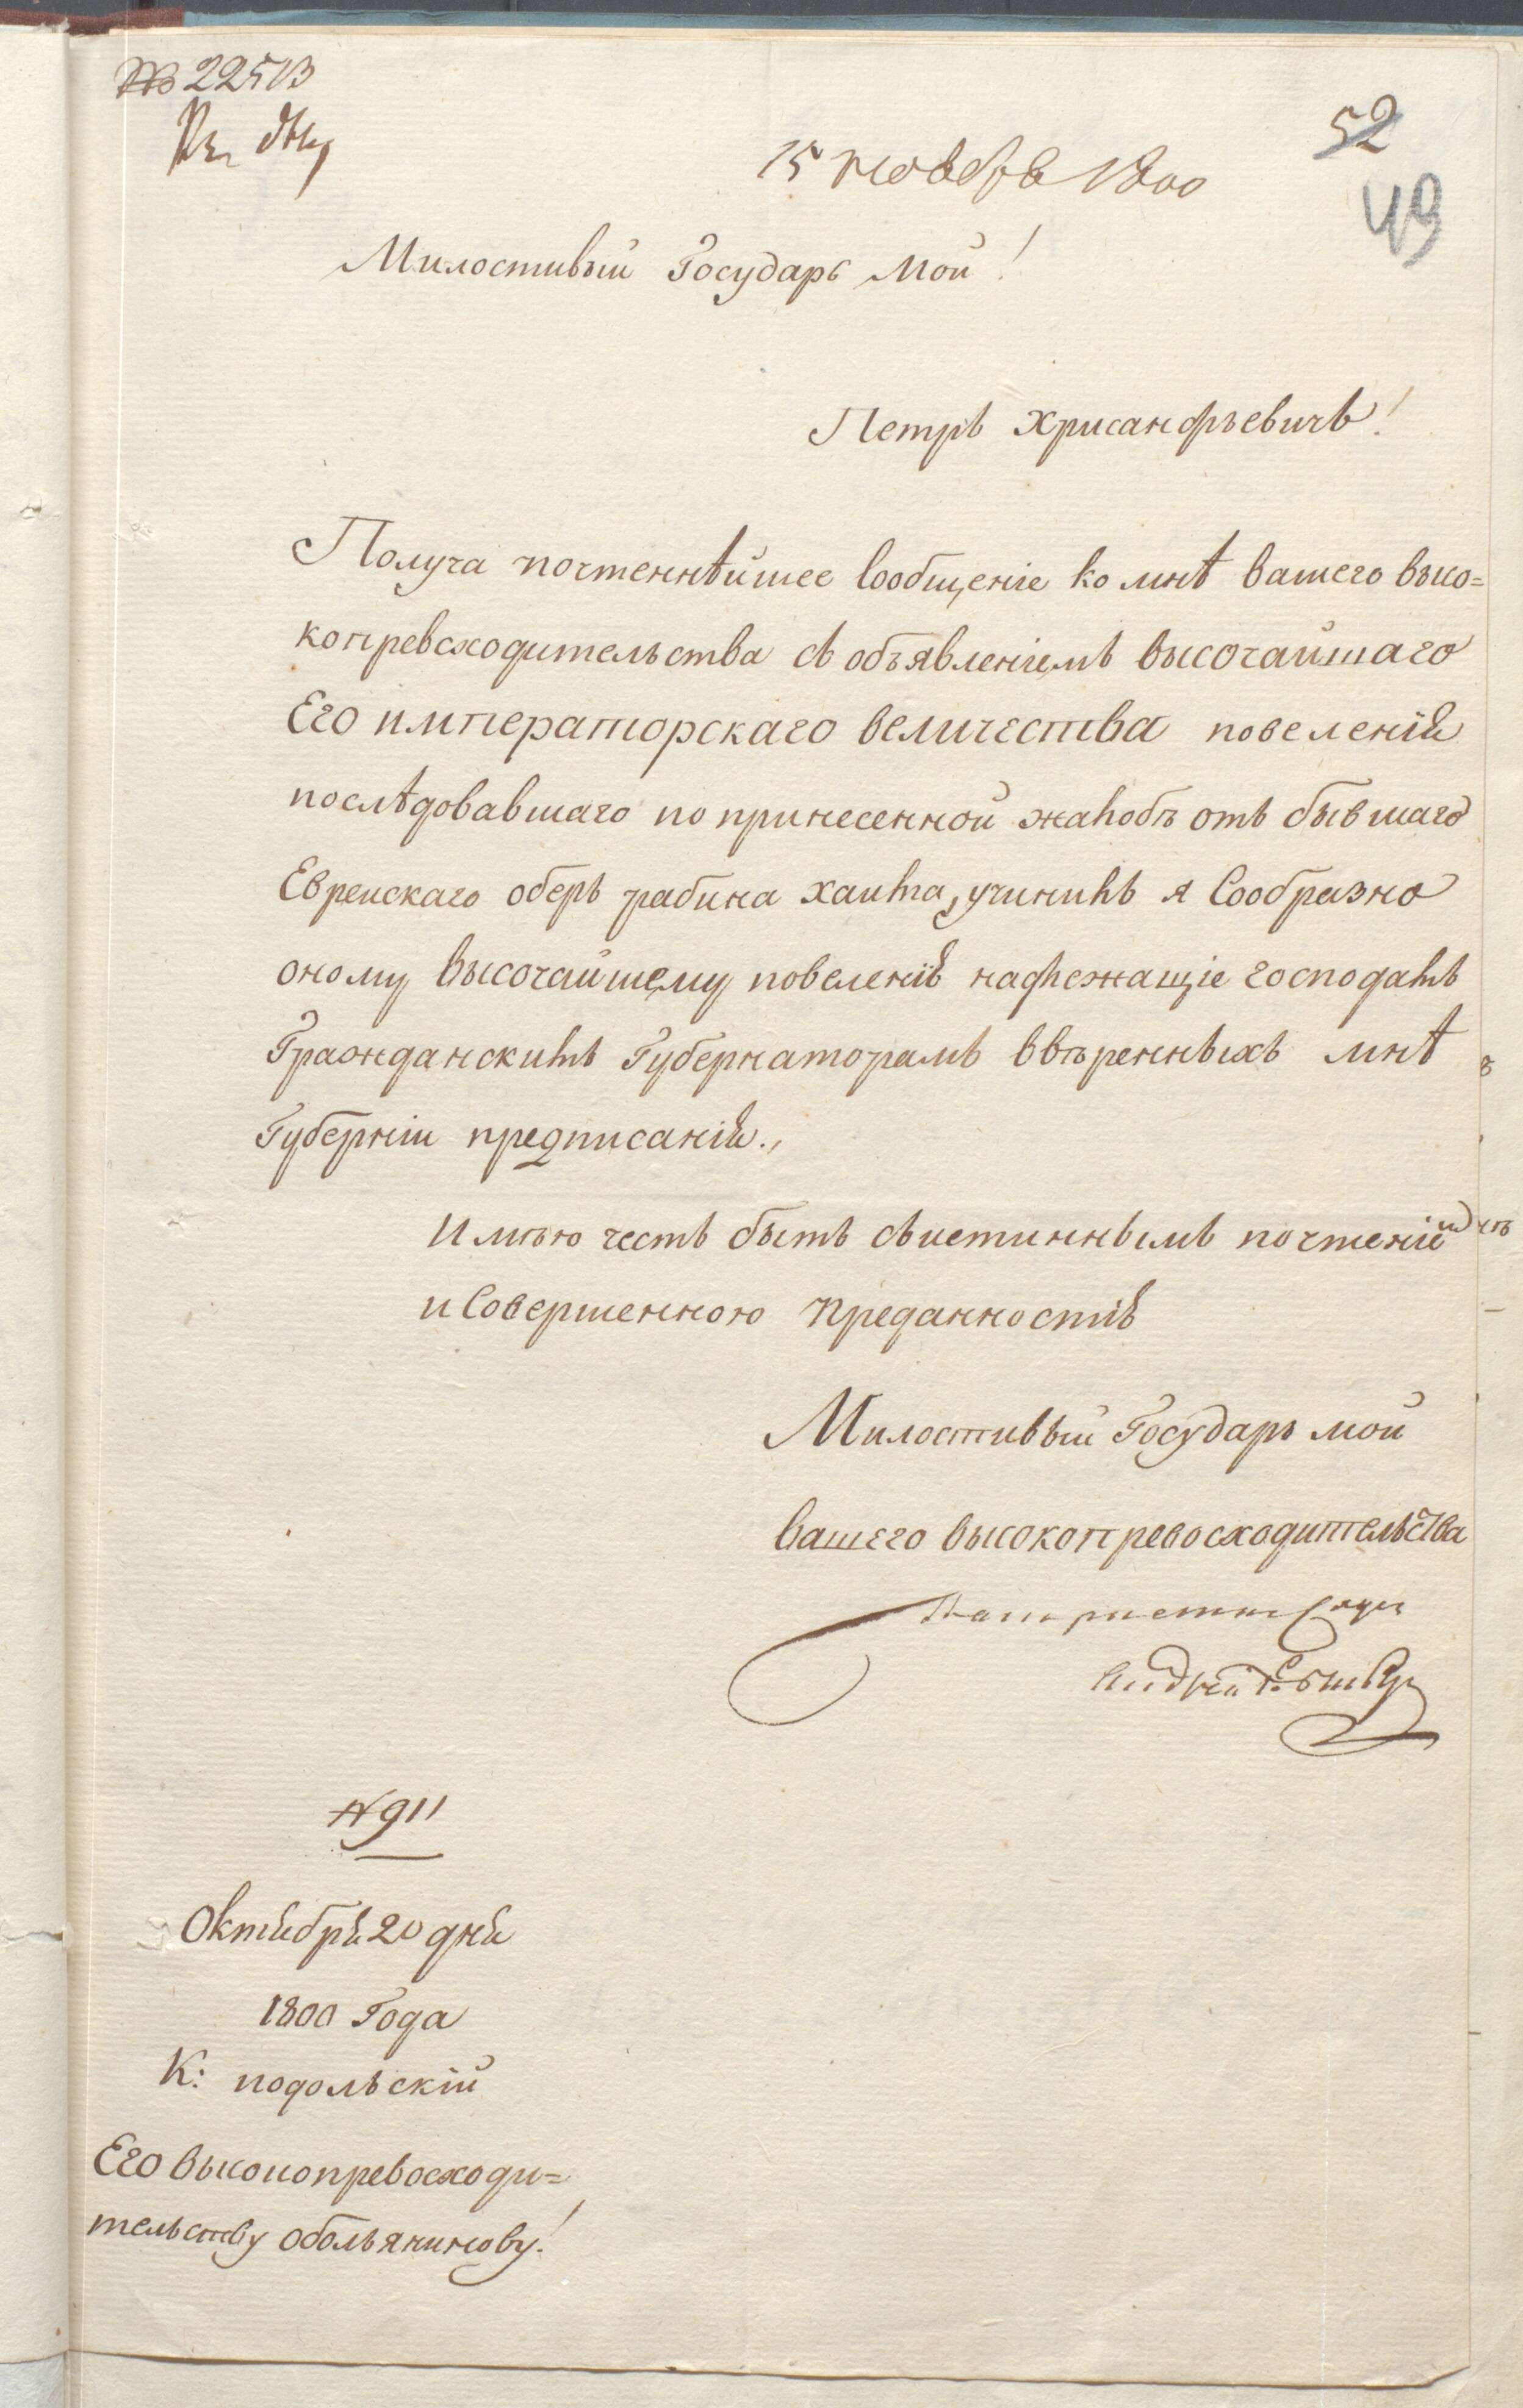 № 22513
Къ дѣлу
52
49
15 ноября 1800
Милостивый Государь мой!
Петръ Хрисанфьевичъ!
Получа почтеннѣйшее сообщеніе ко мнѣ вашего высо=
копревсходительства съ объявленіемъ высочайшаго
Его императорскаго величества повеленія
послѣдовавшаго по принесенной жалобѣ отъ бывшаго
Еврейскаго оберъ рабина хаима, учинилъ я Сообразно
оному высочайшему повеленію надлежащіе господамъ
Гражданскимъ Губернаторамъ ввѣренныхъ мнѣ
Губерніи предписанія.
Имѣю честь быть съ истиннымъ почтеніе
и Совершенною преданностію
Милостивый Государь мой
вашего высокопревосходительства
Андрей
№ 911
Октября 20 дня
1800 Года
К: подольскій
Его высокопревосходи=
тельству обольянинову!